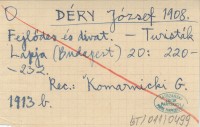 DÉRY József 1908.
Fejlődés és divat. — Turisták
Lapja (Budapest) 20: 220-
-232.
Rec.: Komarnicki G.
1913 b.